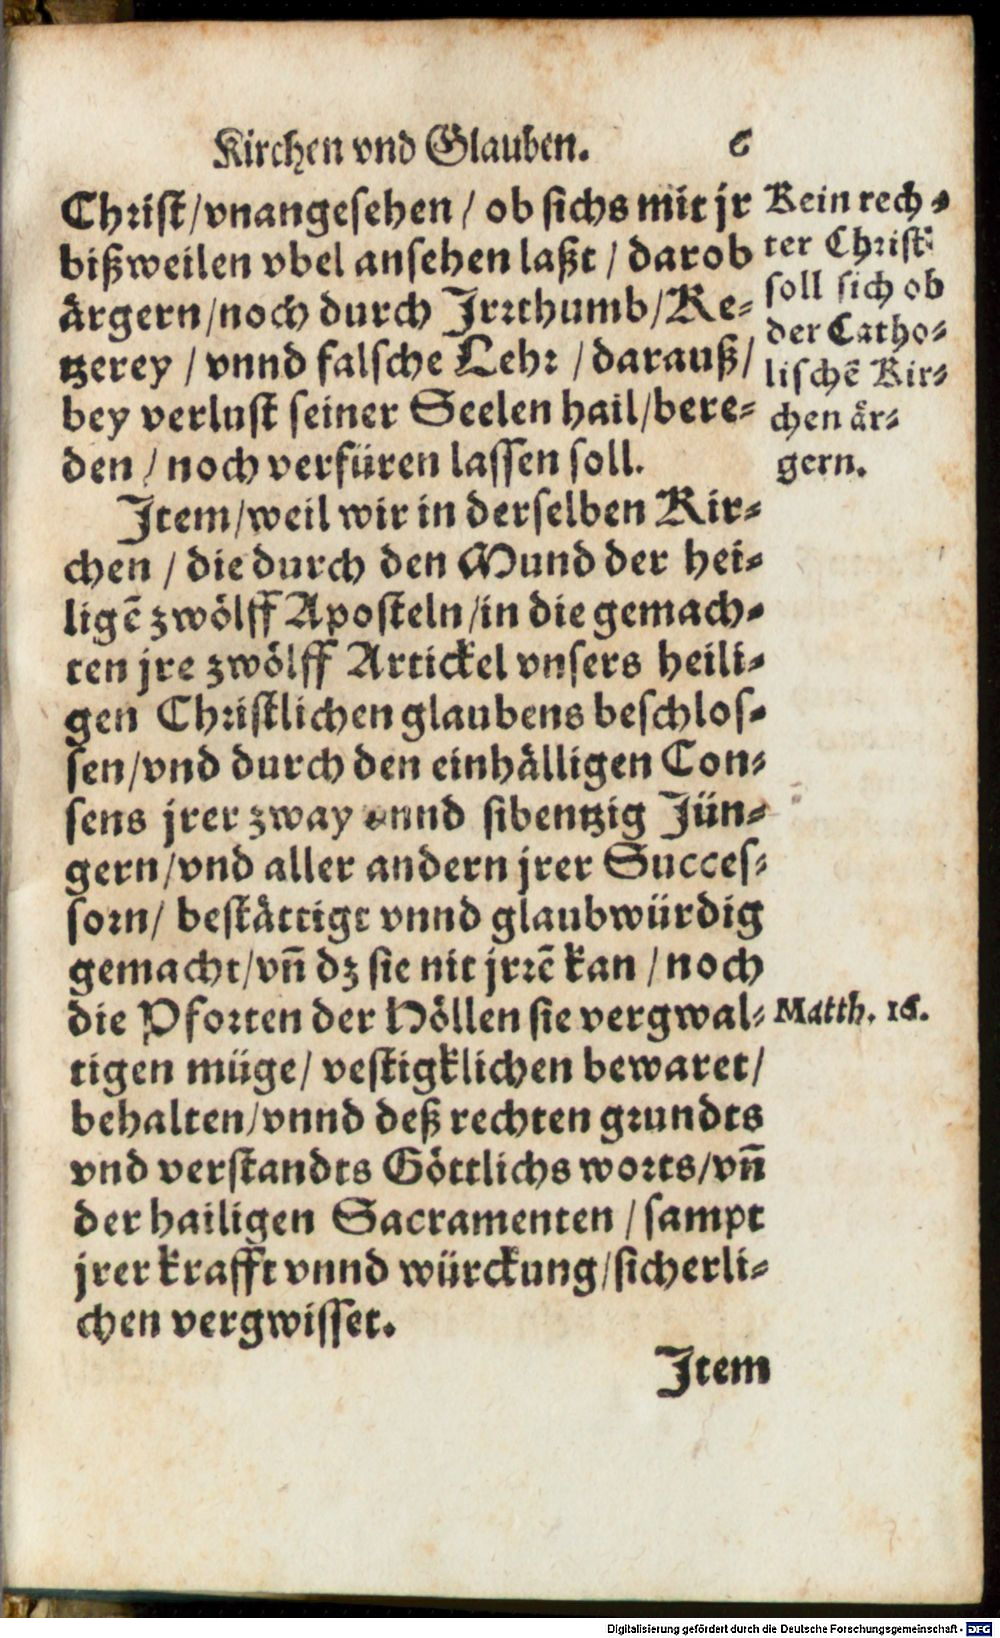 Kirchen vnd Glauben. 6
Christ/vnangesehen/ ob sichs mit jr
bißweilen vbel ansehen laßt / darob
årgern/noch durch Jrrthumb/Ke-
tzerey / vnnd falsche Lehr / darauß/
bey verlust seiner Seelen hail/bere-
den / noch verfüren lassen soll.
Kein rech-
ter Christ
soll sich ob
der Catho-
lischē Kir-
chen år-
gern.
Jtem/weil wir in derselben Kir-
chen / die durch den Mund der hei-
ligē zwölff Aposteln/in die gemach-
ten jre zwölff Artickel vnsers heili-
gen Christlichen glaubens beschlos-
sen/vnd durch den einhålligen Con-
sens jrer zway vnnd sibentzig Jün-
gern/vnd aller andern jrer Succes-
sorn/ beståttigt vnnd glaubwürdig
gemacht/vn̄ dz sie nit jrrē kan / noch
die Pforten der Höllen sie vergwal-
Matth. 16.
tigen müge/ vestigklichen bewaret/
behalten/vnnd deß rechten grundts
vnd verstandts Göttlichs worts/vn̄
der hailigen Sacramenten / sampt
jrer krafft vnnd würckung/sicherli-
chen vergwisset.
Jtem
Digitalisierung gefördert durch die Deutsche Forschungsgemeinschaft - DFG